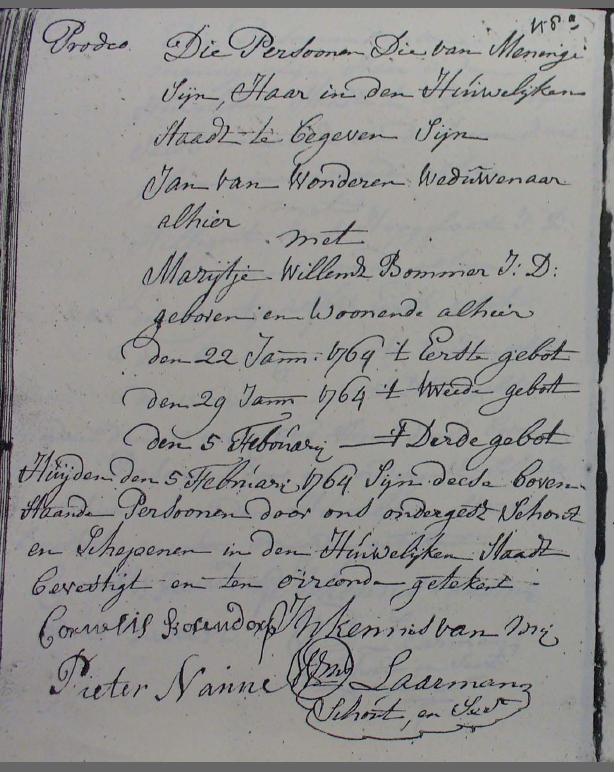 Prodeo Die Persoonen Die van Meninge
Sijn, Haar in den Huwelijken
Staadt te begeven Sijn
Jan van Wonderen Weduwenaar
alhier
met
Marijtje Willems Bommer J: D:
geboren en Woonende alhier
den 22 Jann: 1764 't Eerste gebot
den 29 Jann 1764 't tweede gebot
den 5 Februarij — 't Derde gebot
Huijden den 5 Februari 1764 Sijn deese boven
staande Persoonen door ons onderget Schout
en Schepenen in den Huwelijken Staadt
bevestigt en ten oirconde getekent
Cornelis In kennis van Mij
Pieter Nanne Laarman
Schout, en Secr